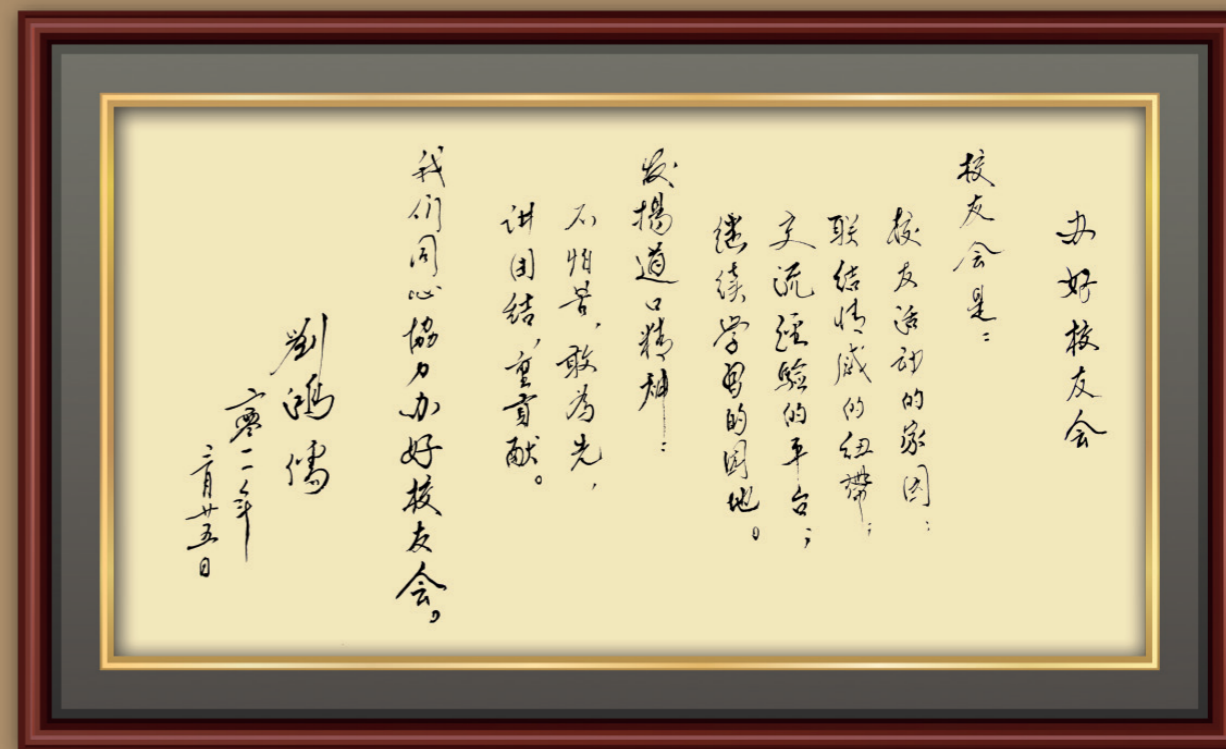 办好校友会
校友会是：
校友活动的家园；
联结情感的纽带；
交流经验的平台；
继续学习的园地。
发揚道口精神：
不怕苦，敢为先，
讲团结，重贡献。
我们同心協力办好校友会。
劉鴻儒
二零一一年
二月廿五日